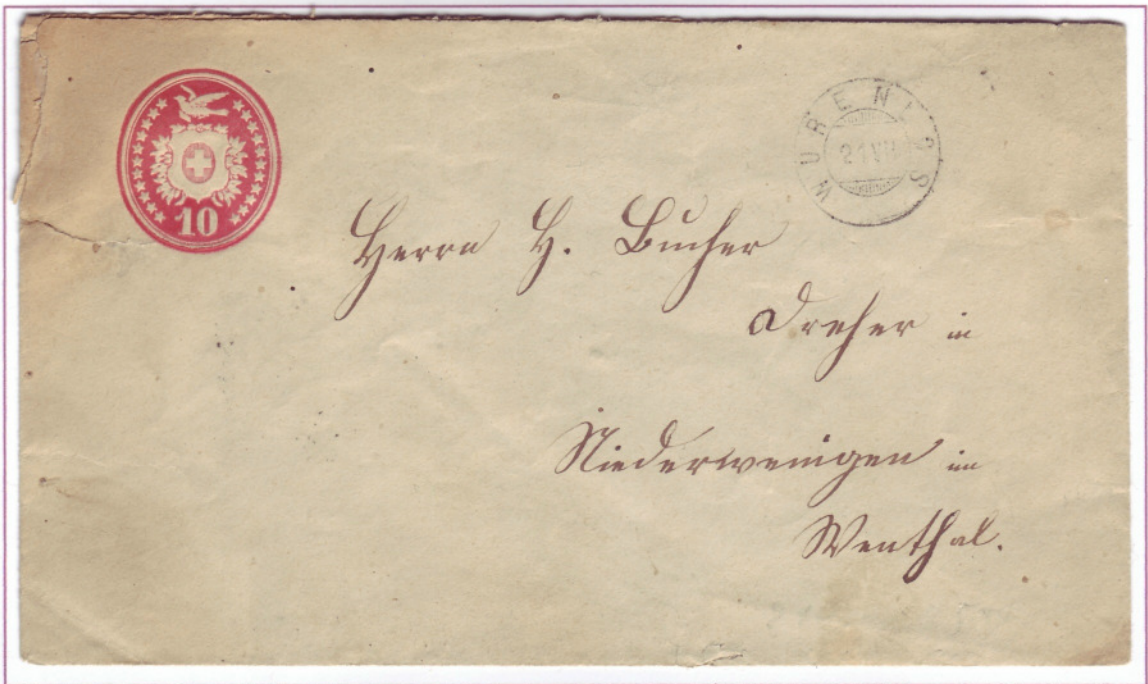 10
WÜRENLOS
21 VII
Herrn H. Bucher
Dreher in
Niederweningen im
Wenthal.